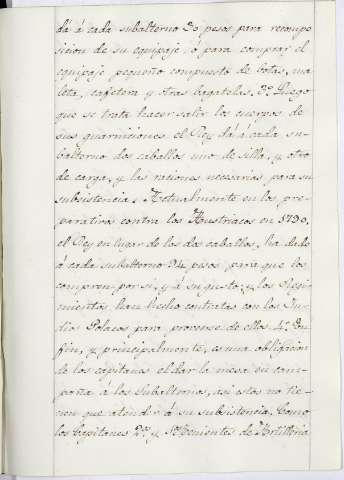 dá á cada subalterno 30 pesos para recompo
sicion de su equipaje, ó para comprar el
equipaje pequeño compuesto de botas, ma
leta, cafetera y otras bagatelas. 3º Luego
que se trata hacer salir los cuerpos de
sus guarniciones el Rey dá á cada su-
balterno dos caballos uno de silla, y otro
de carga, y las raciones necesarias para su
subsistencia: Actualmente en los pre-
parativos contra los Austriacos en 1790,
el Rey en lugar de los dos caballos, ha dado
á cada subalterno 94 pesos para que los
compren por sí, y á su gusto, y los Regi-
mientos han hecho contratas con los Ju-
dios Polacos para proveerse de ellos. 4º En
fin, y principalmente, es una obligacion
de los capitanes el dar la mesa en cam-
paña á los Subalternos, asi estos no tie-
nen que atender á su subsistencia. Como
los Capitanes 2os y Stenientes de Artilleria